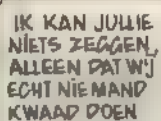 IK KAN JULLIE
NIETS ZEGGEN,
ALLEEN DAT WIJ
ECHT NIEMAND
KWAAD DOEN